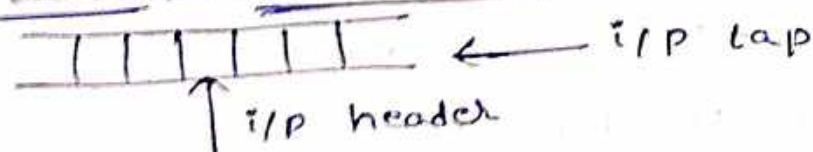 i/p lap
i/p header